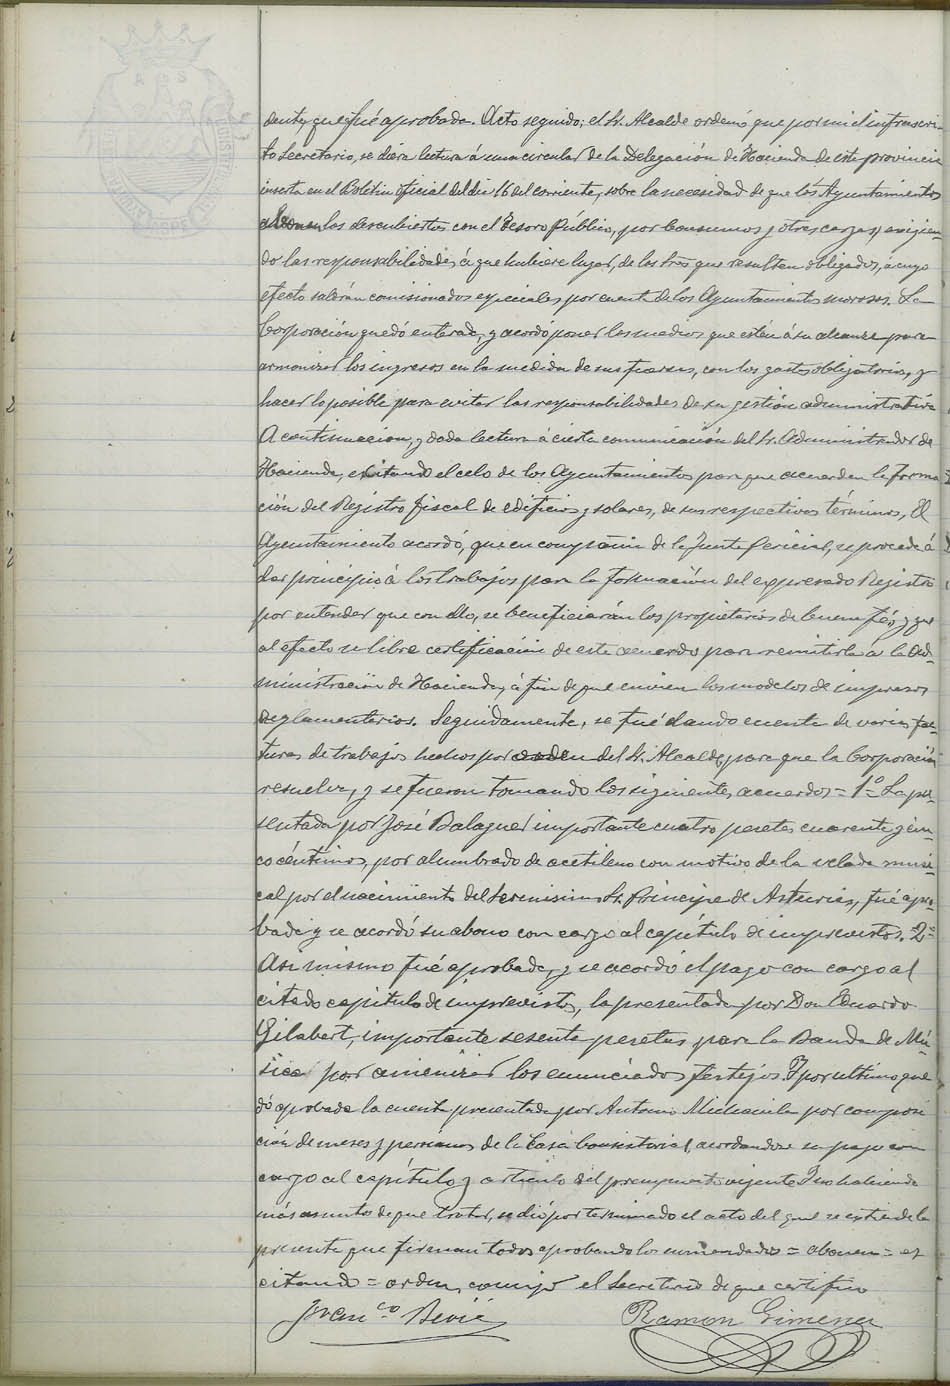 dente, que fué aprobada. Acto seguido, el Sr. Alcalde ordenó que por mi el infrascri-
to Secretario, se diera lectura á una circular de la Delegación de Hacienda de esta provincia
inserta en el Boletin oficial del dia 16 del corriente, sobre la necesidad de que los Ayuntamientos
abonen los descubiertos con el Tesoro Público, por Consumos y otras cargas, exigien-
do las responsabilidades á que hubiere lugar, de los Sres que resulten obligados, á cuyo
efecto saldrán comisionados especiales por cuenta de los Ayuntamientos morosos. La
Corporación quedó enterada, y acordó poner los medios que estén á su alcance para
armonizar los ingresos en la medida de sus fuerzas, con los gastos obligatorios, y
hacer lo posible para evitar las responsabilidades de su gestión administrativa
A continuacion, y dada lectura á cierta comunicación del Sr. Administrador de
Hacienda, excitando el celo de los Ayuntamientos para que acuerden la forma
ción del Registro fiscal de edificios y solares, de sus respectivos términos, El
Ayuntamiento acordó, que en compañia de la Junta Pericial, se proceda á
dar principio á los trabajos para la formación del expresado Registro
por entender que con ello, se beneficiarán los propietarios de buena fé, y que
al efecto se libre certificación de este acuerdo para remitirla á la Ad-
ministración de Hacienda, á fin de que envien los modelos de impresos
reglamentarios. Seguidamente, se fué dando cuenta de varias fac-
turas de trabajos hechos por orden del Sr. Alcalde, para que la Corporación
resuelva, y se fueron tomando los siguientes acuerdos = 1º La pre-
sentada por José Balaguer importante cuatro pesetas cuarenta y cin-
co céntimos, por alumbrado de acetileno con motivo de la velada musi-
cal por el nacimiento del Serenisimo Sr. Principe de Asturias, fué apro-
bada y se acordó su abono con cargo al capítulo de imprevistos. = 2º =
Asi mismo fué aprobada, y se acordó el pago con cargo al
citado capitulo de imprevistos, la presentada por Don Eduardo
Gilabert, importante sesenta pesetas para la Banda de Mú-
sica por amenizar los enunciados festejos. Y por ultimo que
dó aprobada la cuenta presentada por Antonio por composi
ción de mesas y persianas de la Casa Consistorial, acordandose su pago con
cargo al capítulo y articulo del presupuesto vigente. Y no habiendo
más asuntos de que tratar, se dió por terminado el acto del qual se extiende la
presente que firman todos aprobando los enmendados = abonen = ex
citando = orden, conmigo el Secretario de que certifico
Franco. Bevié
Ramon Gimenez